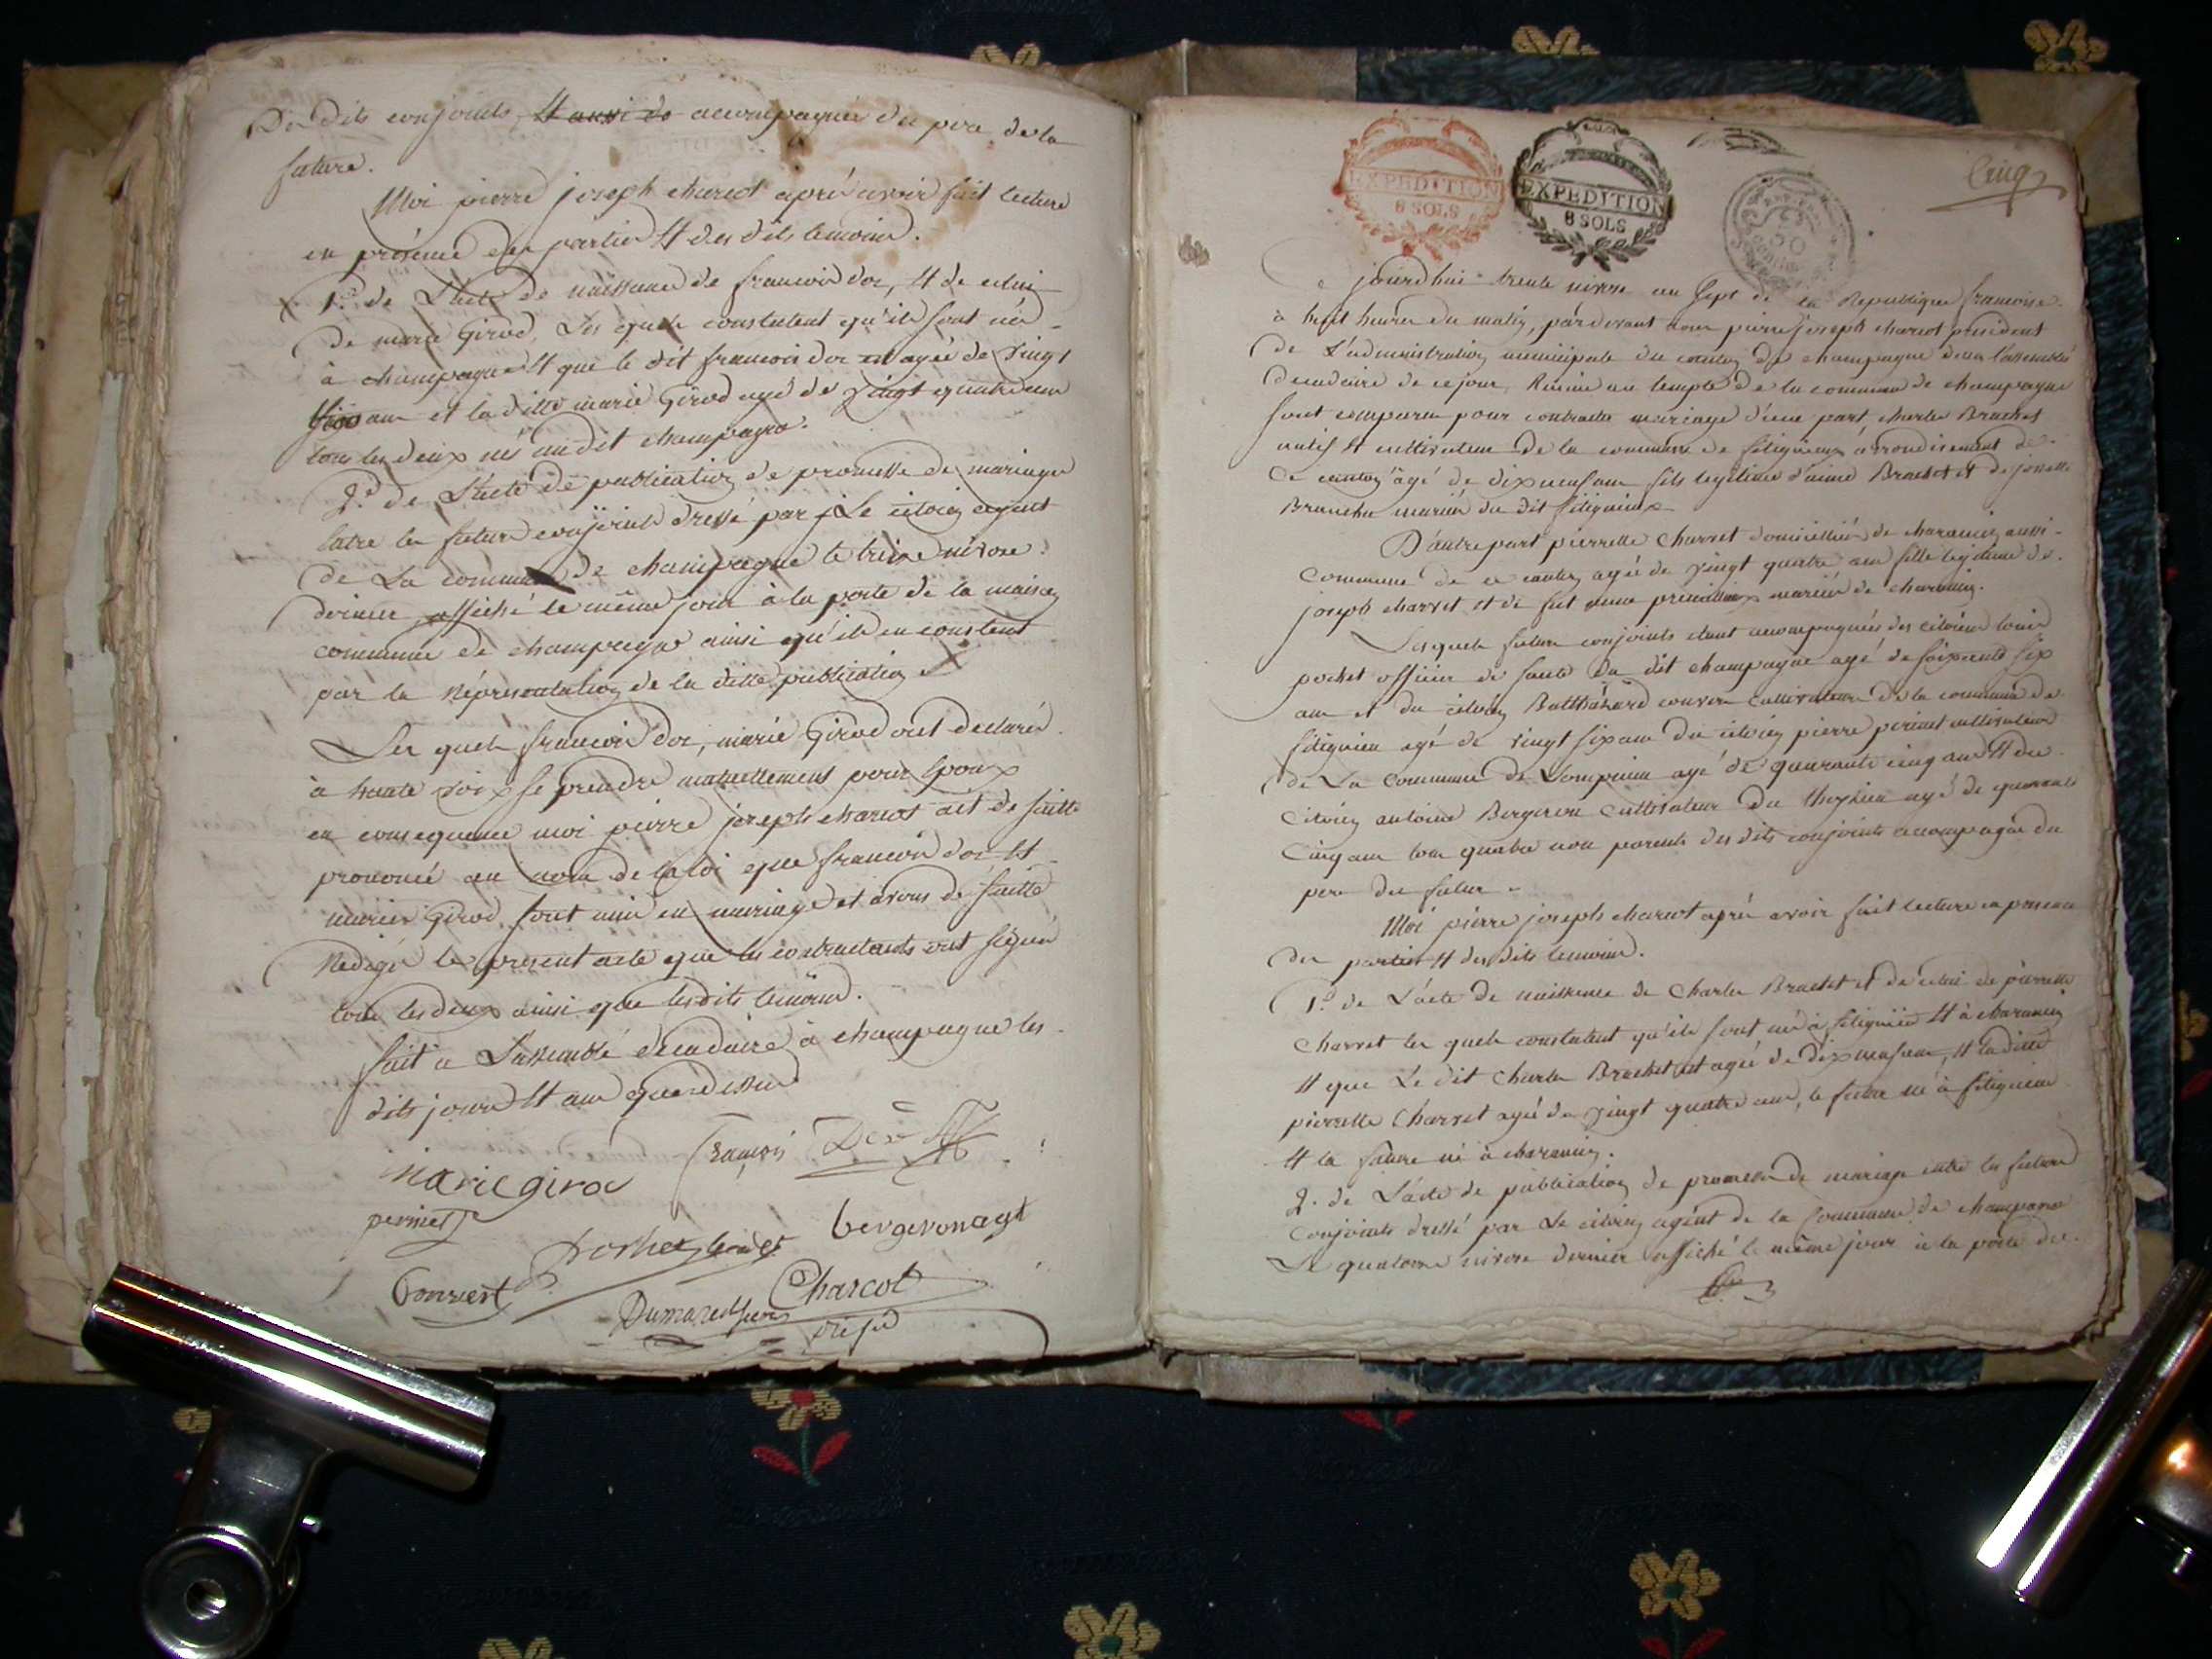 Des dits conjoints, et aussi de accompagnés du pere de la
future.
Moi pierre joseph charcot aprés avoir fait lecture
en présence des parties et des dits temoins.
1º de L'acte de naissance de francois doc, et de celui
de marie Girod, Les quels constatent qu'ils sont nés
à champagne et que le dit francois doc est agé de vingt
ans et la ditte marie Girod agé de vingt quatre ans
tous les deux nés au dit champagne.
2.d de L'acte de publication de promesse de mariage
entre les futurs conjoints dressé par Le citoien agent
de La commune de champagne le treize nivose
dernier affiché le même jour à la porte de la maison
commune de champagne ainsi qu'il en constent
par la représentation de la ditte publication
Les quels francois doc, marie Girod ont declarés
à haute voix se prendre mutuellement pour Epoux
en consequence moi pierre joseph charcot ait de suitte
prononcé au nom de la loi que francois doc et
marie Girod sont unis en mariage et avons de suitte
Redigé le present acte que les contractants ont signés
tous les deux ainsi que les dits temoins.
fait a L'assemblé decadaire à champagne les
dits jours et an que dessus
francois Doc
marie giro
perinet
bergeron agt
pochet
Convert
Charcot
Dumarest
présid
EXPEDITION
8 SOLS
EXPEDITION
8 SOLS
50
Cinq
Ce jourd'hui trente nivose an sept de la Republique francoise
à huit heures du matin, pardevant nous pierre joseph charcot president
de L'administration municipale du canton de champagne dans l'assemblé
decadaire de ce jour, Reunie au temple de la commune de champagne
sont comparus pour contracter mariage d'une part, charles Brachet
natif et cultivateur de la commune de fitignieux arrondissement de
ce canton agé de dix neuf ans fils legitime d'aimé Brachet et de josette
mariés du dit fitignieux
D'autre part pierrette Charvet domiciliée de charancin aussi
Commune de ce canton agée de vingt quatre ans fille legitime de
joseph charvet et de fut mariés de charancin.
Lesquels futurs conjoints etant accompagnés des citoiens louis
pochet officier de santé du dit champagne agé de soixante six
ans et du citoien Balthazard convert Cultivateur de la commune de
fitignieu agé de vingt six ans du citoien pierre perinet cultivateur
de La Commune de Lompnieu agé de quarante cinq ans et du
Citoien antoine Bergeron Cultivateur du agé de quarante
Cinq ans tous quatre non parents des dits conjoints accompagné du
pere du futur
Moi pierre joseph charcot aprés avoir fait lecture en presence
des parties et des dits temoins.
1º. de L'acte de naissance de Charles Brachet et de celui de pierrette
Charvet les quels constatent qu'ils sont nés à fitignieu et à charancin
et que Le dit Charles Brachet est agé de dix neuf ans, et la ditte
pierrette Charvet agé de vingt quatre ans, le futur né à fitignieu
et la future né à charancin.
2. de L'acte de publication de promesse de mariage entre les futurs
Conjoints dressé par Le citoien agent de la Commune de champagne
Le quatorze nivose dernier affiché le même jour à la porte de